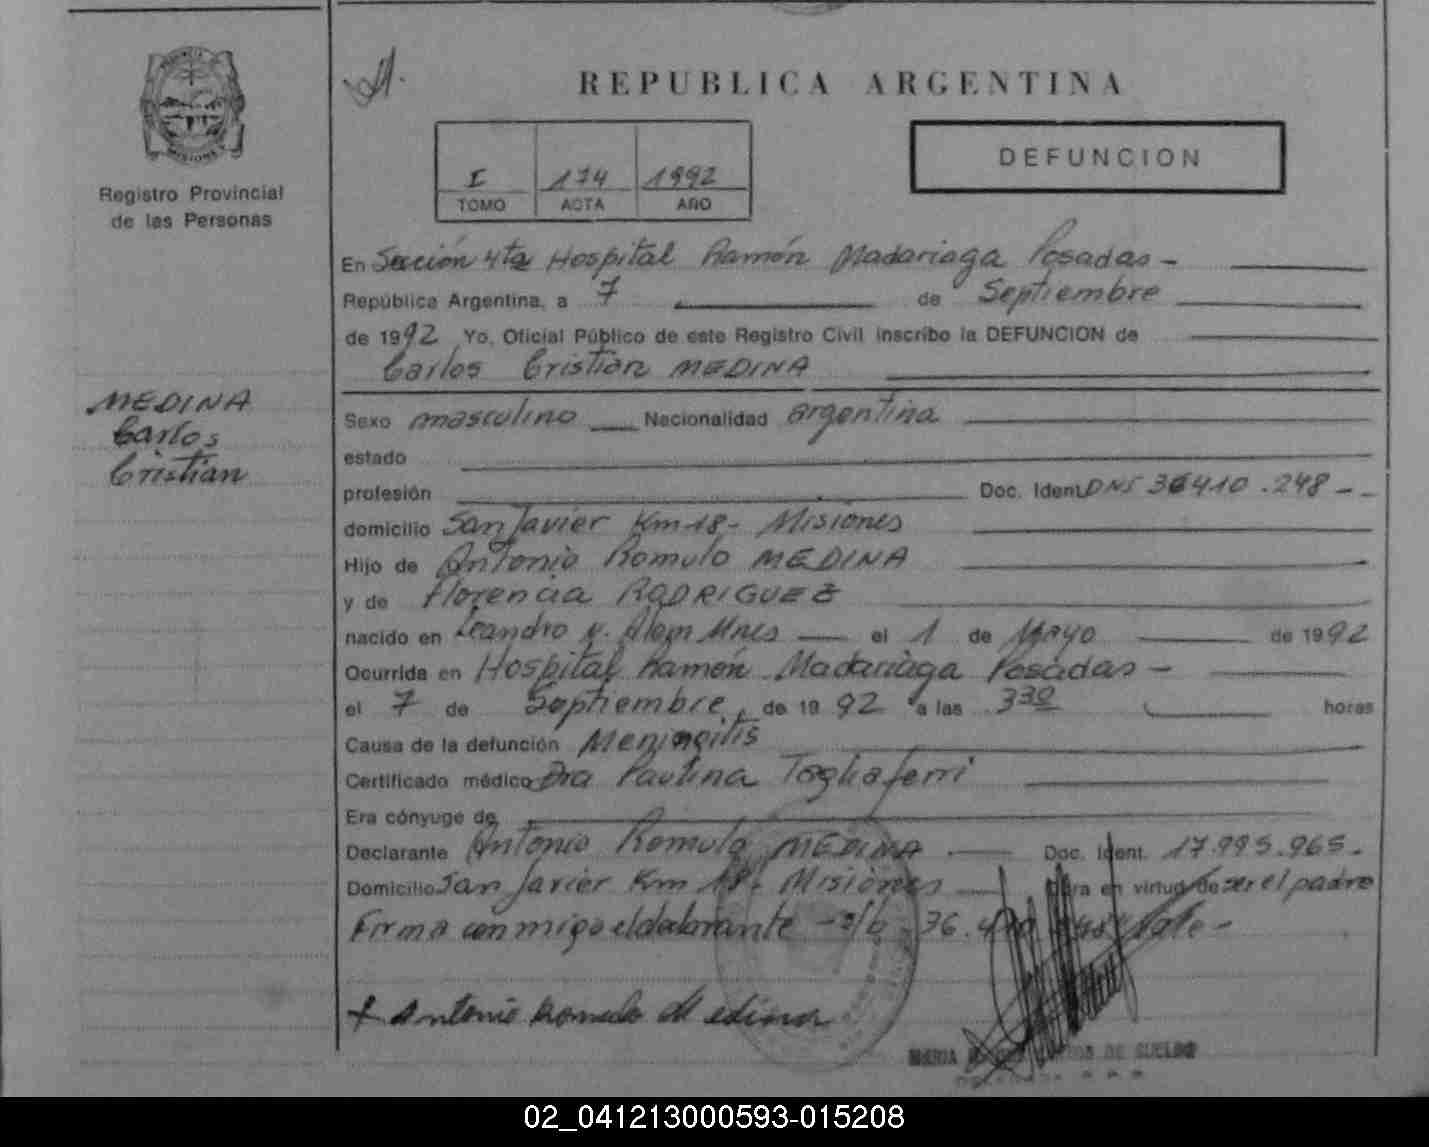 PROVINCIA
MISIONES
Registro Provincial
de las Personas
REPUBLICA ARGENTINA
I 174 1992
TOMO ACTA AÑO
DEFUNCION
En Sección 4ta Hospital Ramón Madariaga Posadas -
República Argentina, a 7 de Septiembre
de 1992 Yo, Oficial Público de este Registro Civil inscribo la DEFUNCION de
Carlos Cristian MEDINA
MEDINA
Carlos
Cristian
Sexo masculino Nacionalidad argentina
estado
profesión Doc. Ident. DNI 36410.248 - -
domicilio San Javier Km 18 - Misiones
Hijo de Antonio Romulo MEDINA
y de Florencia RODRIGUEZ
nacido en Leandro N. Alem Mnes el 1 de Mayo de 1992
Ocurrida en Hospital Ramón Madariaga Posadas -
el 7 de Septiembre de 1992 a las 3 30 horas
Causa de la defunción Meningitis
Certificado médico Dra Paulina Togliaferri
Era cónyuge de
Declarante Antonio Romulo MEDINA Doc. Ident. 17.995.965.
Domicilio San Javier Km 18 - Misiones Obra en virtud de ser el padre
Firma conmigo el declarante - s/b 36.410 248 Vale -
+ Antonio Romulo Medina
DE SUELDO
02_041213000593-015208